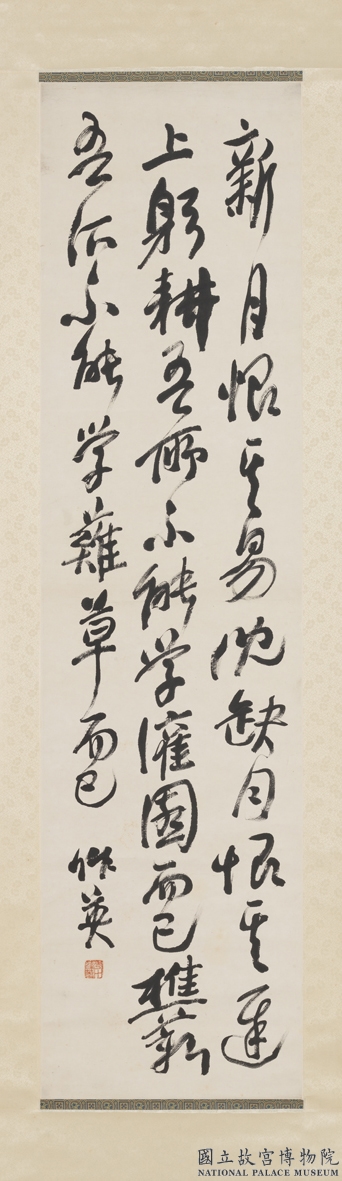 新月恨其易沈缺月恨其遲
上躬耕吾所不能学灌園而已樵薪
吾所不能学薙草而已
英
國立故宮博物院
NATIONAL PALACE MUSEUM